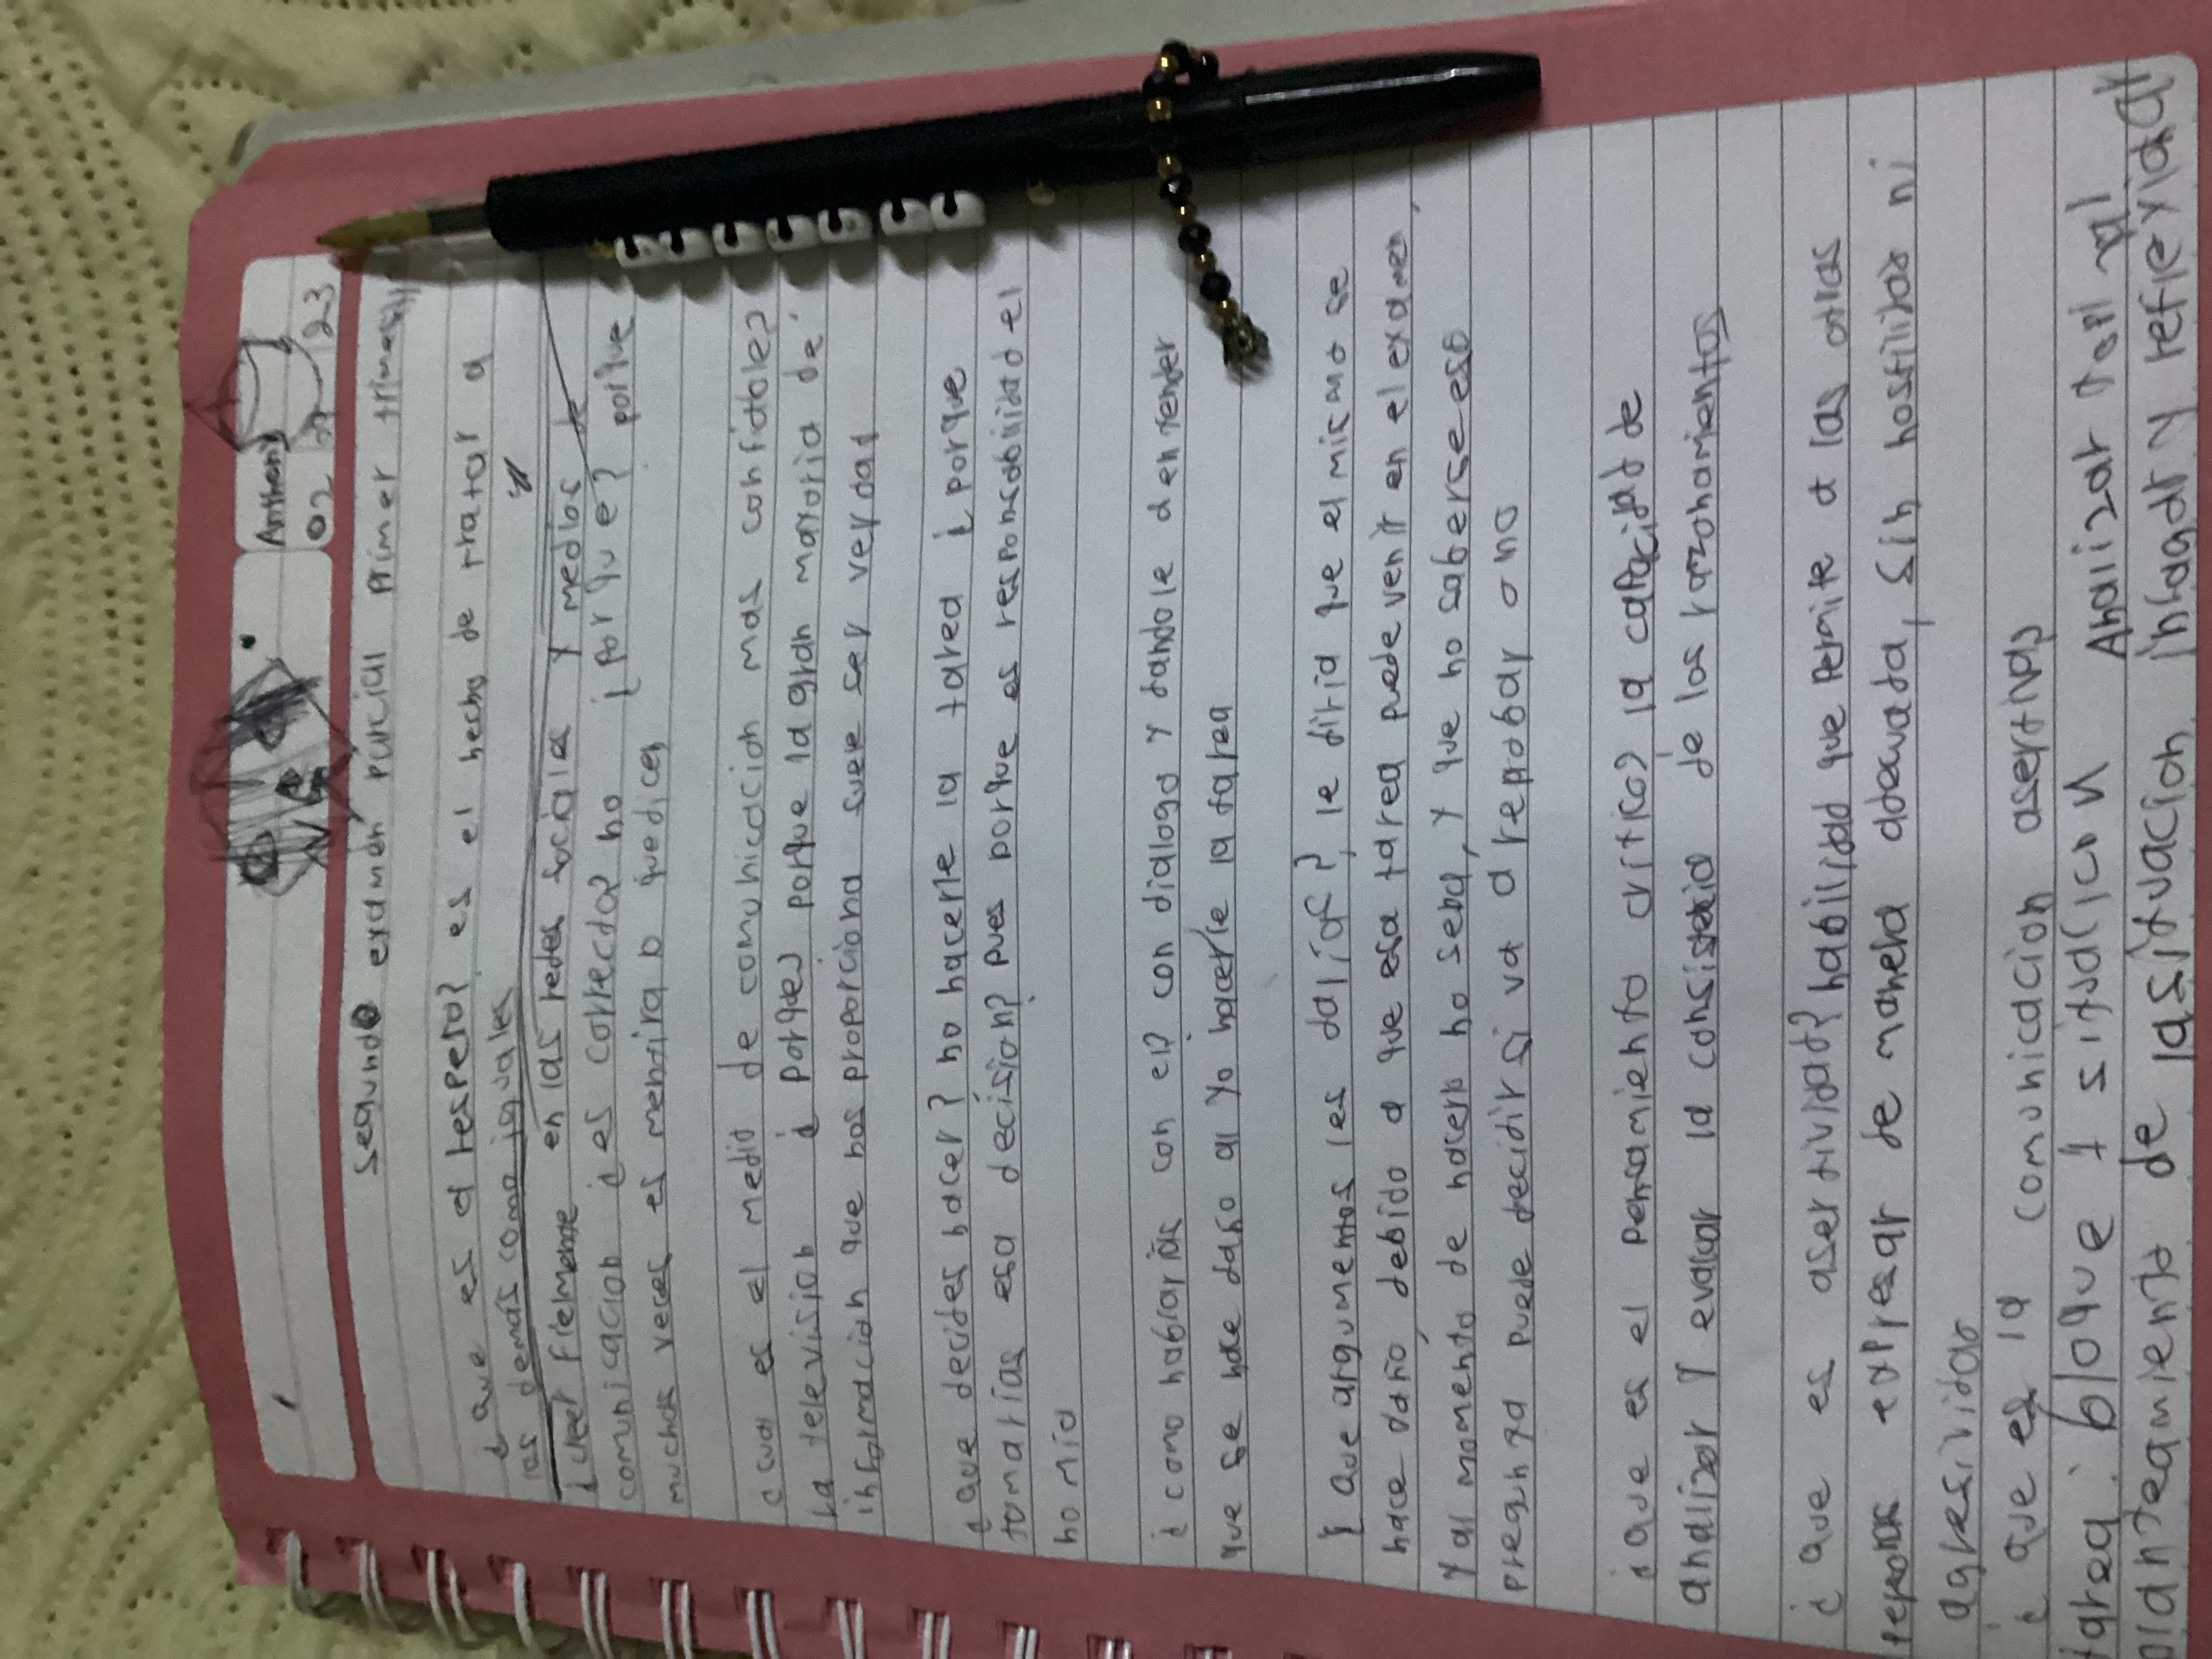 Anthony
02 23
segundo examen parcial primer trimestr
¿ que es el respeto? es el hecho de tratar a
los demás como iguales y
¿creer fielmente en las redes sociales y medios de
comunicacion ¿ es correcto? no ¿ por que? porque
muchas veces es mentira lo que dicen
¿ cual es el medio de comunicacion mas confiable?
la television ¿ porque? porque la gran mayoria de
informacion que nos proporciona suele ser verdad
¿ que decides hacer? no hacerle la tarea ¿ porque
tomarias esa decision? pues porque es responsabilidad el
no mia
¿ como hablarias con el? con dialogo y dandole a entender
que se hace daño al yo hacerle la tarea
¿ que argumentos les darias?, le diria que el mismo se
hace daño, debido a que esa tarea puede venir en el examen,
y al momento de hacern no seba, y que no saberse eso
pregunta puede decidir si va a reprobar o no
¿ que es el pensamiento critico? la capacidad de
analizar y evaluar la consistencia de los razonamientos
¿ que es asertividad? habilidad que permite a las otras
expresar de manera adecuada, sin hostilidad ni
agresividar
¿ que es la comunicacion asertiva
tarea: bloque 1 situacion Analizar
planteamiento de la situacion indagar y reflexionar